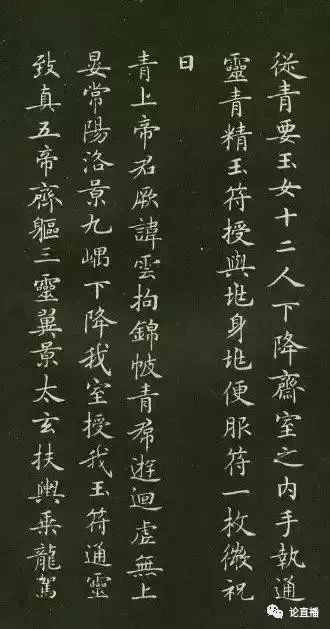 從青要玉女十二人下降齋室之內手執通
靈青精玉符授與兆身兆便服符一枚微祝
曰
青上帝君厥諱雲拘錦帔青帬遊迴虛無上
晏常陽洛景九嵎下降我室授我玉符通靈
致真五帝齊軀三靈翼景太玄扶輿乘龍駕
论直播